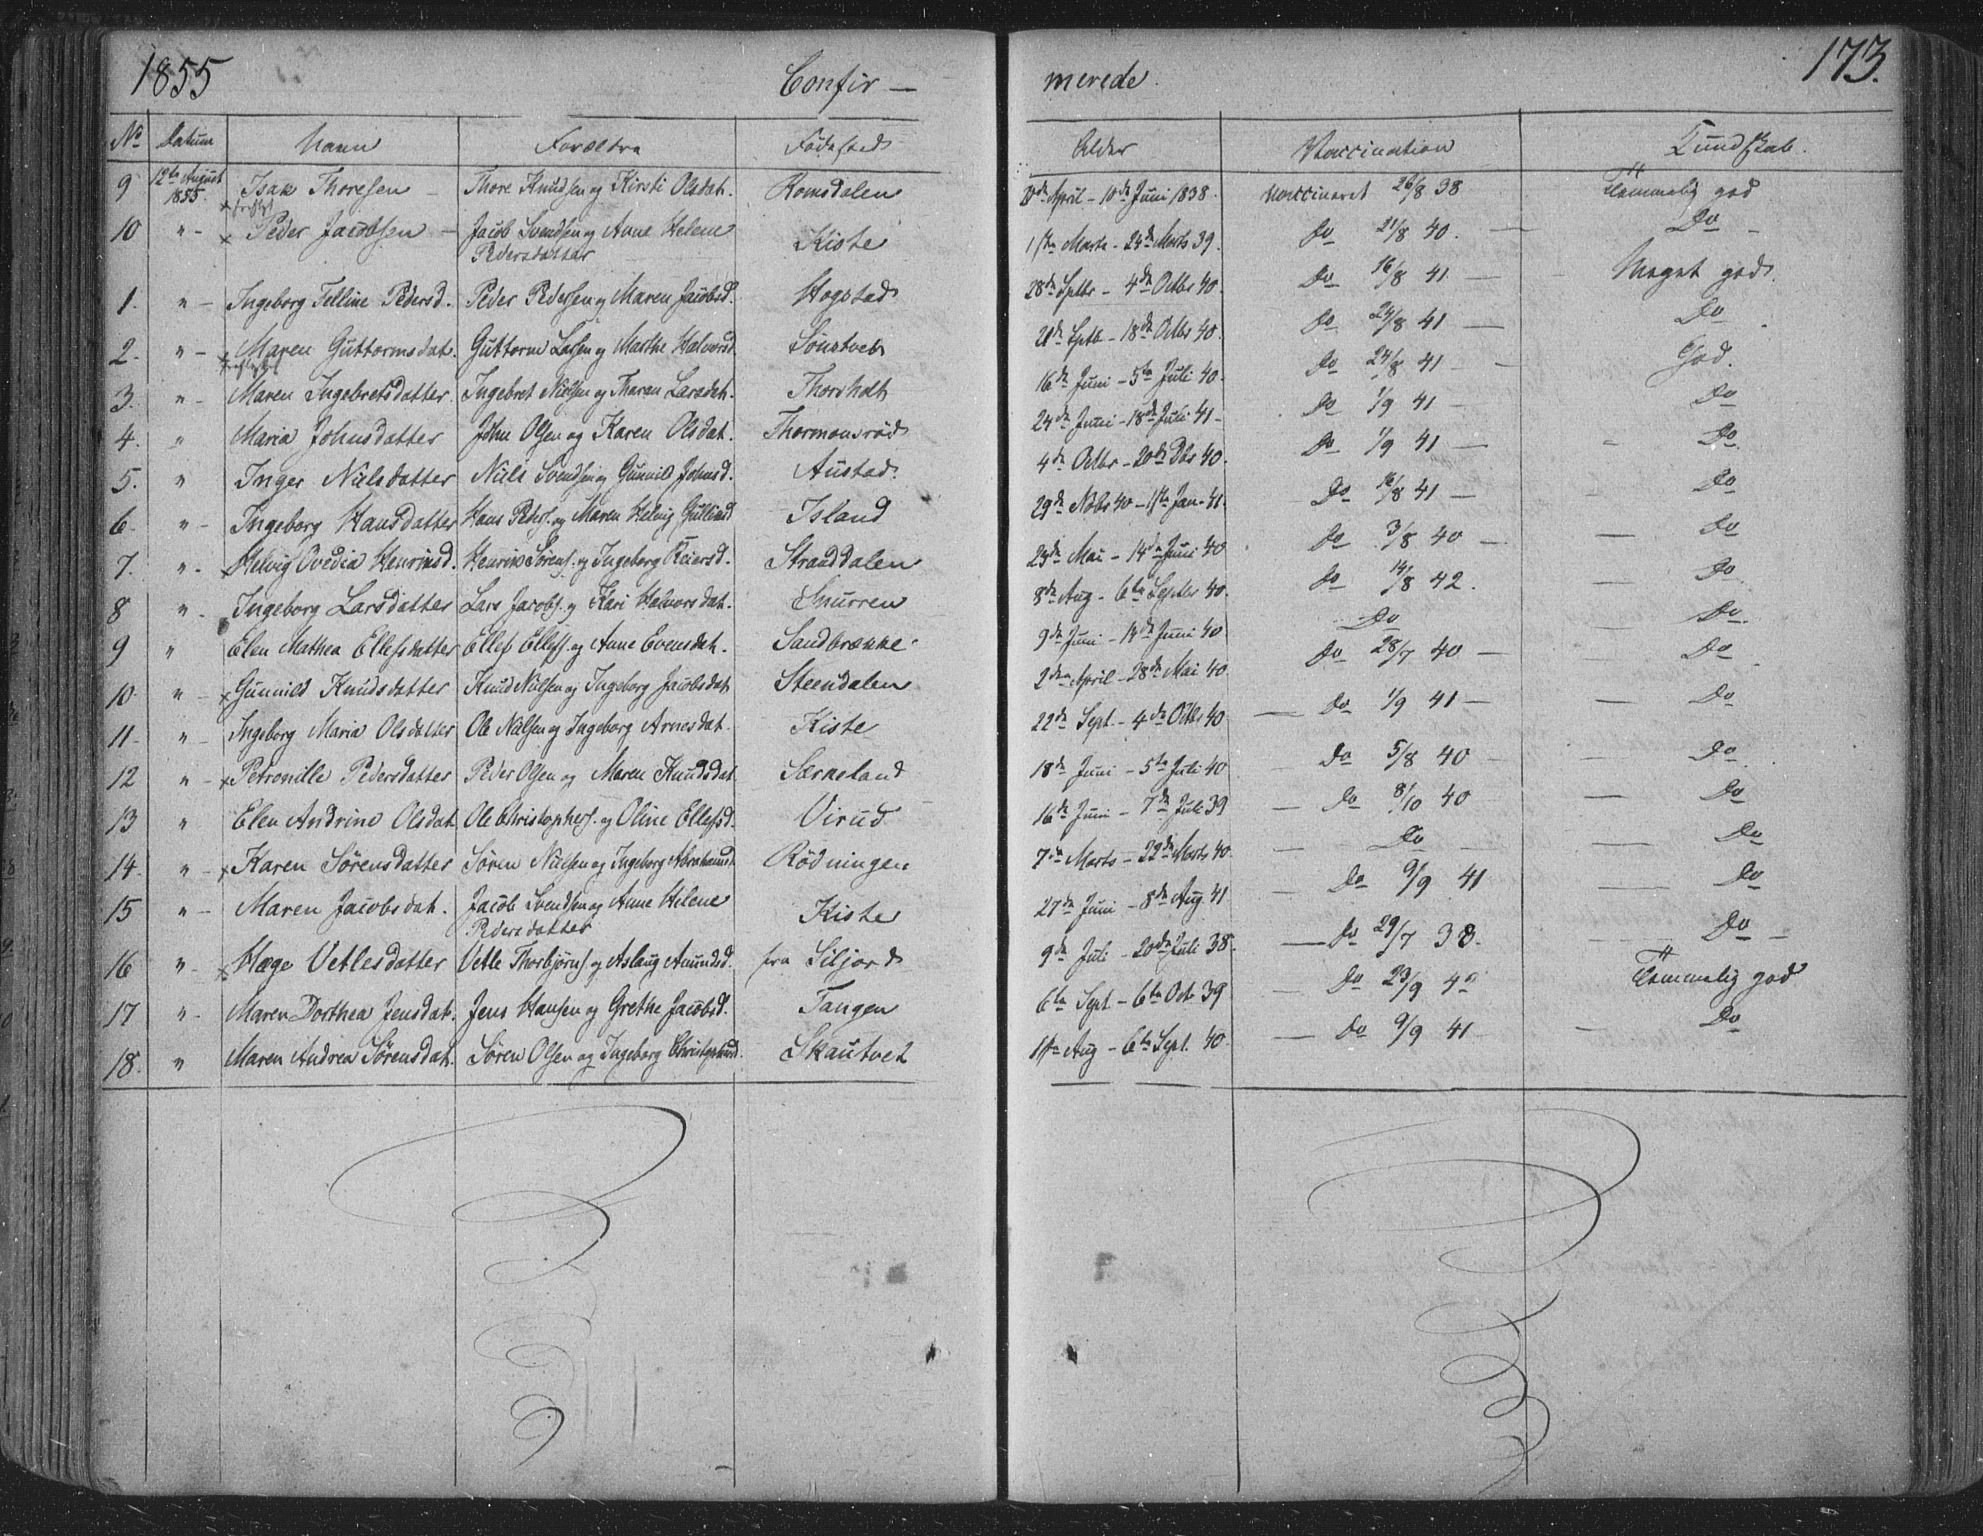 1855 Confir — merede. 173.
No Datum Navn Forældre Fødested Alder Vaccination Kundskab.
9 12te August 1855. Isak Thoresen — Thore Knudsen og Kirsti Olsdat. Romsdalen April – 10de Juni 1838. vaccineret 26/8 38 Temmelig god
10 " - Peder Jacobsen — Jacob Svendsen og Anne Helene Pedersdatter Kiste 1ste Marts – 24de Marts 39. Do 21/8 40. — Do –
1. " - Ingeborg Telline Pedersd. Peder Pedersen og Maren Jacobsd. Hogstad 28de Septbr – 4de Octbr 40. Do 16/8 41 — Meget god.
2. " - Maren Guttormsdat. Guttorm Larsen og Marthe Halvorsd. Sønstveb Septb – 18de Octbr 40. Do 24/8 41 — Do
3. " - Maren Ingebretsdatter. Ingebret Nielsen og Tharan Larsdat. Thorsholt 16de Juni – 5te Juli 40. Do 24/8 41 — God.
4. " Maria Johnsdatter John Olsen og Karen Olsdat. Thormonsrød 24de Juni – 18de Juli 41 – Do 1/9 41 – Do
5. " Inger Nielsdatter Niels Svendsen og Gunnild Johnsd. Austad. 4de Octbr – 20de Dbr 40. Do 1/9 41 — Do
6. " - Ingeborg Hansdatter Hans Peders. og Maren Helvig Gullicksd Island 29de Nobr 40 – 1ste Jan. 41. Do 16/8 41 — Do
7. " - Helvig Ovedia Henriksd. Henrik Sørens. og Ingeborg Reiersd. Stranddalen 23de Mai – 14de Juni 40 Do 3/8 40 — Do
8 " - Ingeborg Larsdatter Lars Jacobs. og Kari Halvorsdat. Snurren 8de Aug – 6te Septbr 40. Do 14/8 42. — Do
9 " Elen Mathea Ellefsdatter Ellef Ellefs. og Anne Evensdat. Sandbrække 9de Juni – 14de Juni 40 Do — Do
10 " - Gunnild Knudsdatter Knud Nielsen og Ingeborg Jacobsdat Steendalen 2den April – 28de Mai 40 Do 28/7 40 — Do
11. " - Ingeborg Maria Olsdatter Ole Nielsen og Ingeborg Arnesdat. Kiste 22de Sept. – 4de Octbr 40 — Do 1/9 41 — Do
12 " - Petronille Pedersdatter Peder Olsen og Maren Knudsdat Særkeland 18de Juni – 5te Juli 40 Do 5/8 40 — Do
13 " Elen Andrine Olsdat Ole Christophers. og Oline Ellefsd. Virud 16de Juni – 7de Juli 39 — Do 8/10 40 — Do
14. " - Karen Sørensdatter Søren Nielsen og Ingeborg Abrahamsd Rødningen 7de Marts – 22de Marts 40 — Do — Do
15 " - Maren Jacobsdat. Jacob Svendsen og Anne Helene Pedersdatter Kiste 27de Juni – 8de Aug. 41 – Do 9/9 41 — Do
16 " - Hæge Vetlesdatter Vetle Thorbjørns. og Aslaug Amundsd. fra Siljord 9de Juli – 20de Juli 38 — Do 29/7 38. — Do –
17 " - Maren Dorthea Jensdat. Jens Hansen og Grethe Jacobsd. Tangen 6te Sept – 6te Oct. 39 — Do 23/9 40 Temmelig god
18. " Maren Andrea Sørensdat. Søren Olsen og Ingeborg Skautvet 1ste Aug – 6te Sept. 40. — Do 9/9 41 – Do